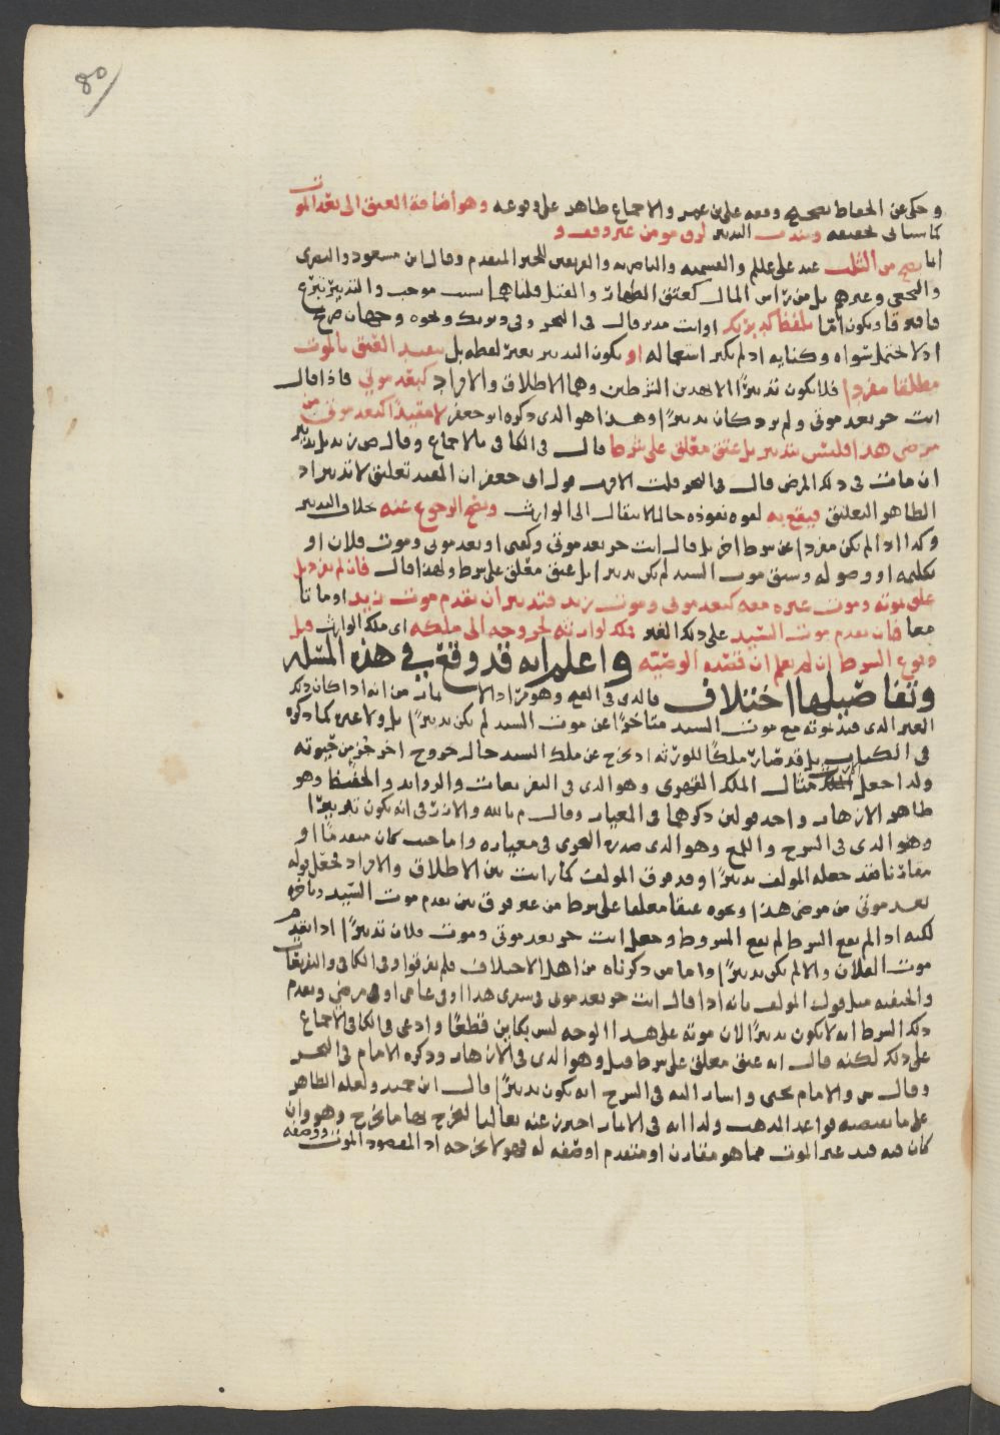 80
وحكي عن الحفاظ تصحيح وقفه على بن عمر والاجماع طاهر على وقوعه وهو اضافة العتق الى بعد الموت
كما سياتى تحقيقه وندب التدبير لرق مومن غير
انما يصح من الثلث عند على علم والقسميه والناصريه والفريقين للخبر المتقدم وقال ابن مسعود والبصرى
والنخعي وغيرهم بل من راس المال كعتق الظهار والقتل قلنا موجب والتدبير تبرع
فافترقا ويكون اما بلفظ كدبرتك او انت مدبر قال فى البحر وفى ونحوه وجهان صريح
اذ لا يحتمل سواه وكنايه اذ لم يكثر استعماله او يكون التدبير بغير لفظه بل بتقييد العتق بالموت
مطلقا مفردا فلا يكون تدبيرًا الا بهذين الشرطين وهما الاطلاق والافراد كبعد موتي فاذا قال
انت حر بعد موتى ولم يزد كان تدبيرًا وهذا هو الذى ذكره ابو جعفر لا مقيدا كبعد موتى من
مرضى هذا فليس بتدبير بل عتق معلق على شرط قال فى الكافى بالاجماع وقال بل تدبير
ان مات فى ذلك المرض قال فى البحر قلت الاقرب قول ابى جعفر ان المقيد تعليق لا تدبير اذ
الظاهر التعليق فيقع به لقوه نفوذه حال الانتقال الى الوارث ويصح الرجوع عنه خلاف التدبير
وكذا اذا لم يكن مفردا عن شرط اخر بل قال انت حر بعد موتى او بعد موتى وموت فلان او
تكليمه او وصوله وسبق موت السيد لم يكن تدبيرا بل عتق معلق على شرط ولهذا قال فان لم يفرد بل
علق بموته وموت غيره معه كبعد موتى وموت زيد فتدبير ان تقدم موت زيد او ماتا
معا فان تقدم موت السيد على ذلك الغير فكذلك لوارثه لخروجه الى ملكه اى ملك الوارث قبل
وقوع الشرط ان لم يعلم ان قصده الوصيه واعلم انه قد وقع في هذه المسئله
وتفاصيلها اختلاف فالذى فى الفتح وهو من انه اذا كان ذلك
الغير الذى قيد بموته مع موت السيد متاخرًا عن موت السيد لم يكن تدبيرًا بل ولا غيره كما ذكره
فى الكتاب بل قد صار ملكًا للورثه اذ يخرج عن ملك السيد حال خروج اخر جزء من حيوته
ولذا جعل مثال الملك القهري وهو الذى فى التفريعات والزوايد والحفيظ وهو
ظاهر الازهار واحد قولين ذكرهما فى المعيار وقال م بالله والازرقى انه يكون تدبيرًا
وهو الذى فى الشرح واللمع وهو الذى صدره النجرى فى معياره واما حيث كان متقدمًا او
مقارنا فقد جعله المولف تدبيرًا وقد فرق المولف كما رايت بين الاطلاق والافراد فجعل قوله
بعد موتى من مرضى هذا ونحوه عتقا معلقا على شرط من غير فرق بين تقدم موت السيد وتاخره
لكنه اذا لم يقع الشرط لم يقع المشروط وجعل انت حر بعد موتى وموت فلان تدبيرًا اذا تقدم
موت الفلان والا لم يكن تدبيرًا واما من ذكرناه من اهل الاختلاف فلم يفرقوا وفى الكافى والتفريعات
والحنفيه مثل قول المولف بانه اذا قال انت حر بعد موتى فى سفرى هذا او فى عامى او فى مرضى وتقدم
ذلك الشرط انه لا يكون تدبيرًا لان موته على هذا الوجه ليس بكاين قطعًا وادعى فى الكافى الاجماع
على ذلك لكنه قال انه عتق معلق على شرط قيل وهو الذى فى الازهار وذكره الامام فى البحر
وقال والامام يحيى واشار اليه فى الشرح انه يكون تدبيرًا قال ابن حميد ولعله الظاهر
على ما تقتضيه قواعد المذهب ولذا انه فى الاثمار احترز عنه بغالبا ليخرج بها ما يخرج وهو وان
كان فيه قيد غير الموت مما هو مقارن او متقدم او صفه له فهو لا يخرجه اذ المقصود الموت وصفه